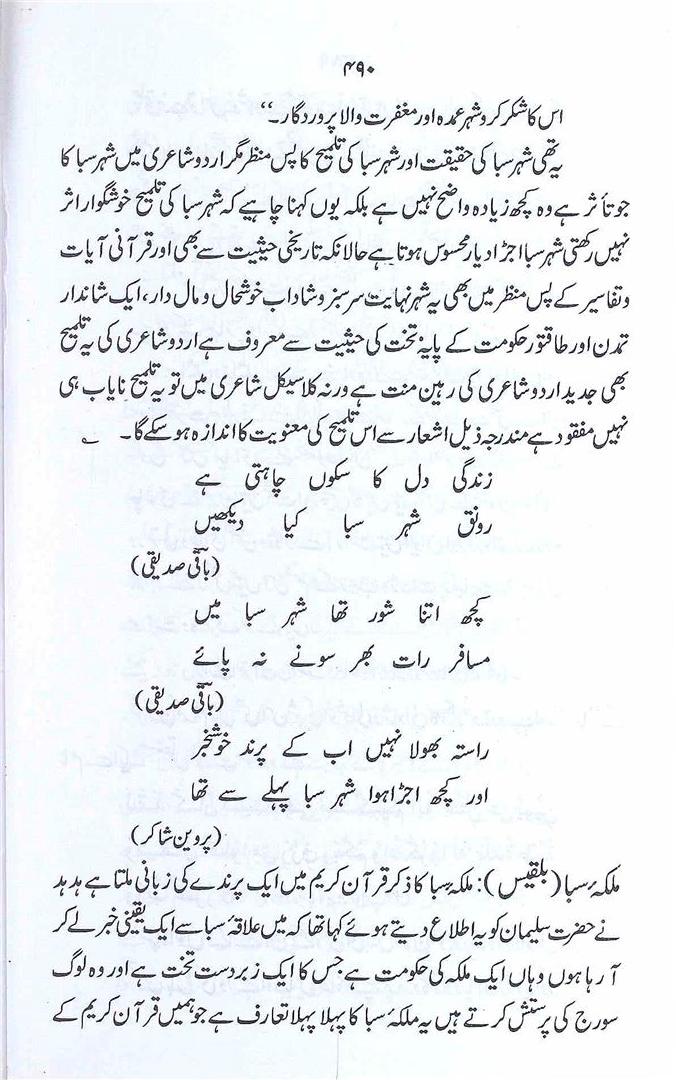 ۴۹۰
اس کا شکر کرو شہر عمدہ اور مغفرت والا پروردگار۔‘‘
یہ تھی شہر سبا کی حقیقت اور شہر سبا کی تلمیح کا پس منظر مگر اردو شاعری میں شہر سبا کا
جو تأثر ہے وہ کچھ زیادہ واضح نہیں ہے بلکہ یوں کہنا چاہیے کہ شہر سبا کی تلمیح خوشگوار اثر
نہیں رکھتی شہر سبا اجڑا دیار محسوس ہوتا ہے حالانکہ تاریخی حیثیت سے بھی اور قرآنی آیات
و تفاسیر کے پس منظر میں بھی یہ شہر نہایت سرسبز و شاداب خوشحال و مال دار، ایک شاندار
تمدن اور طاقتور حکومت کے پایۂ تخت کی حیثیت سے معروف ہے اردو شاعری کی یہ تلمیح
بھی جدید اردو شاعری کی رہین منت ہے ورنہ کلاسیکل شاعری میں تو یہ تلمیح نایاب ہی
نہیں مفقود ہے مندرجہ ذیل اشعار سے اس تلمیح کی معنویت کا اندازہ ہو سکے گا۔ ؎
زندگی دل کا سکوں چاہتی ہے
رونق شہر سبا کیا دیکھیں
(باقی صدیقی)
کچھ اتنا شور تھا شہر سبا میں
مسافر رات بھر سونے نہ پائے
(باقی صدیقی)
راستہ بھولا نہیں اب کے پرند خوشخبر
اور کچھ اجڑا ہوا شہر سبا پہلے سے تھا
(پروین شاکر)
ملکۂ سبا (بلقیس): ملکۂ سبا کا ذکر قرآن کریم میں ایک پرندے کی زبانی ملتا ہے ہدہد
نے حضرت سلیمان کو یہ اطلاع دیتے ہوئے کہا تھا کہ میں علاقۂ سبا سے ایک یقینی خبر لے کر
آ رہا ہوں وہاں ایک ملکہ کی حکومت ہے جس کا ایک زبردست تخت ہے اور وہ لوگ
سورج کی پرستش کرتے ہیں یہ ملکۂ سبا کا پہلا پہلا تعارف ہے جو ہمیں قرآن کریم کے